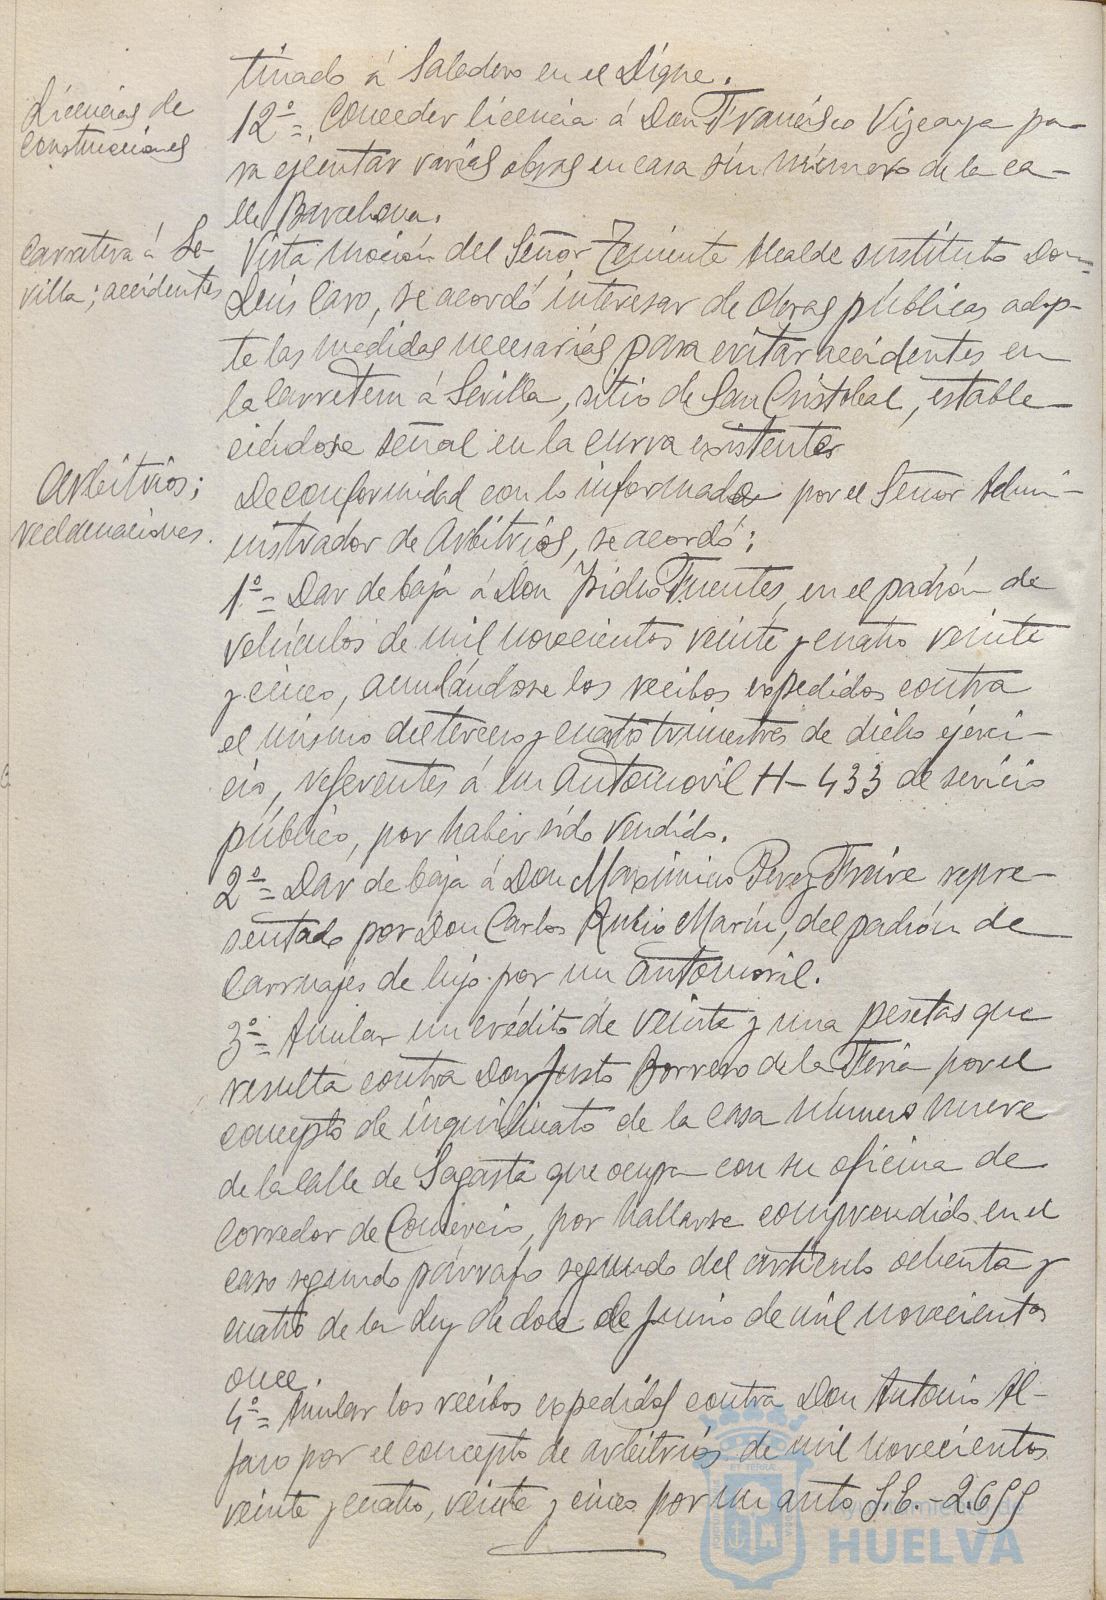 tinado á Saladero en el Dique.
Licencias de
construcciones
12º= Conceder licencia á Don Francisco Vizcaya pa-
ra ejecutar varias obras en casa sin número de la ca-
lle Barcelona.
Carretera á Se-
villa; accidentes
Vista moción del Señor Teniente Alcalde sustituto Don
Luis Caro, se acordó interesar de Obras públicas adop-
te las medidas necesarias para evitar accidentes en
la Carretera á Sevilla, sitio de San Cristobal, estable-
ciéndose señal en la curva existente
Arbitrios;
reclamaciones.
De conformidad con lo informado por el Señor Admi-
nistrador de Arbitrios, se acordó:
1º= Dar de baja á Don Isidro Fuentes, en el padrón de
vehículos de mil novecientos veinte y cuatro veinte
y cinco, anulándose los recibos expedidos contra
el mismo del tercero y cuarto trimestres de dicho ejerci-
cio, referentes á un automovil H-433 de servicio
público, por haber sido vendido.
2º= Dar de baja á Don Maximino Perez Freire repre-
sentado por Don Carlos Rubio Marín, del padrón de
Carruajes de lujo por un automóvil.
3º= Anular un crédito de veinte y una pesetas que
resulta contra Don Justo Borrero de la Feria por el
concepto de inquilinato de la casa número nueve
de la calle de Sagasta que ocupa con su oficina de
Corredor de Comercio, por hallarse comprendido en el
caso segundo párrafo segundo del artículo ochenta y
cuatro de la Ley de doce de Junio de mil novecientos
once.
4º= Anular los recibos expedidos contra Don Antonio Al-
faro por el concepto de arbitrios de mil novecientos
veinte y cuatro, veinte y cinco por un auto S.E.-2.699
Ayuntamiento de
HUELVA